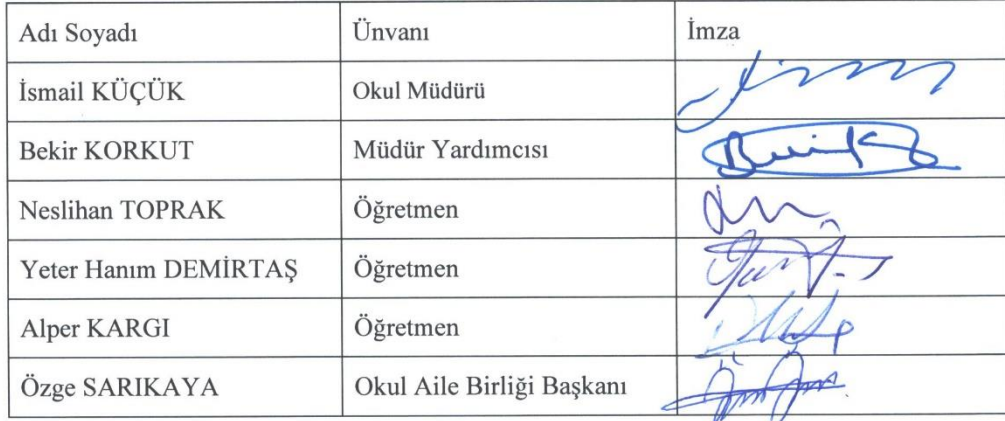 Adı Soyadı Ünvanı İmza
İsmail KÜÇÜK Okul Müdürü
Bekir KORKUT Müdür Yardımcısı
Neslihan TOPRAK Öğretmen
Yeter Hanım DEMİRTAŞ Öğretmen
Alper KARGI Öğretmen
Özge SARIKAYA Okul Aile Birliği Başkanı